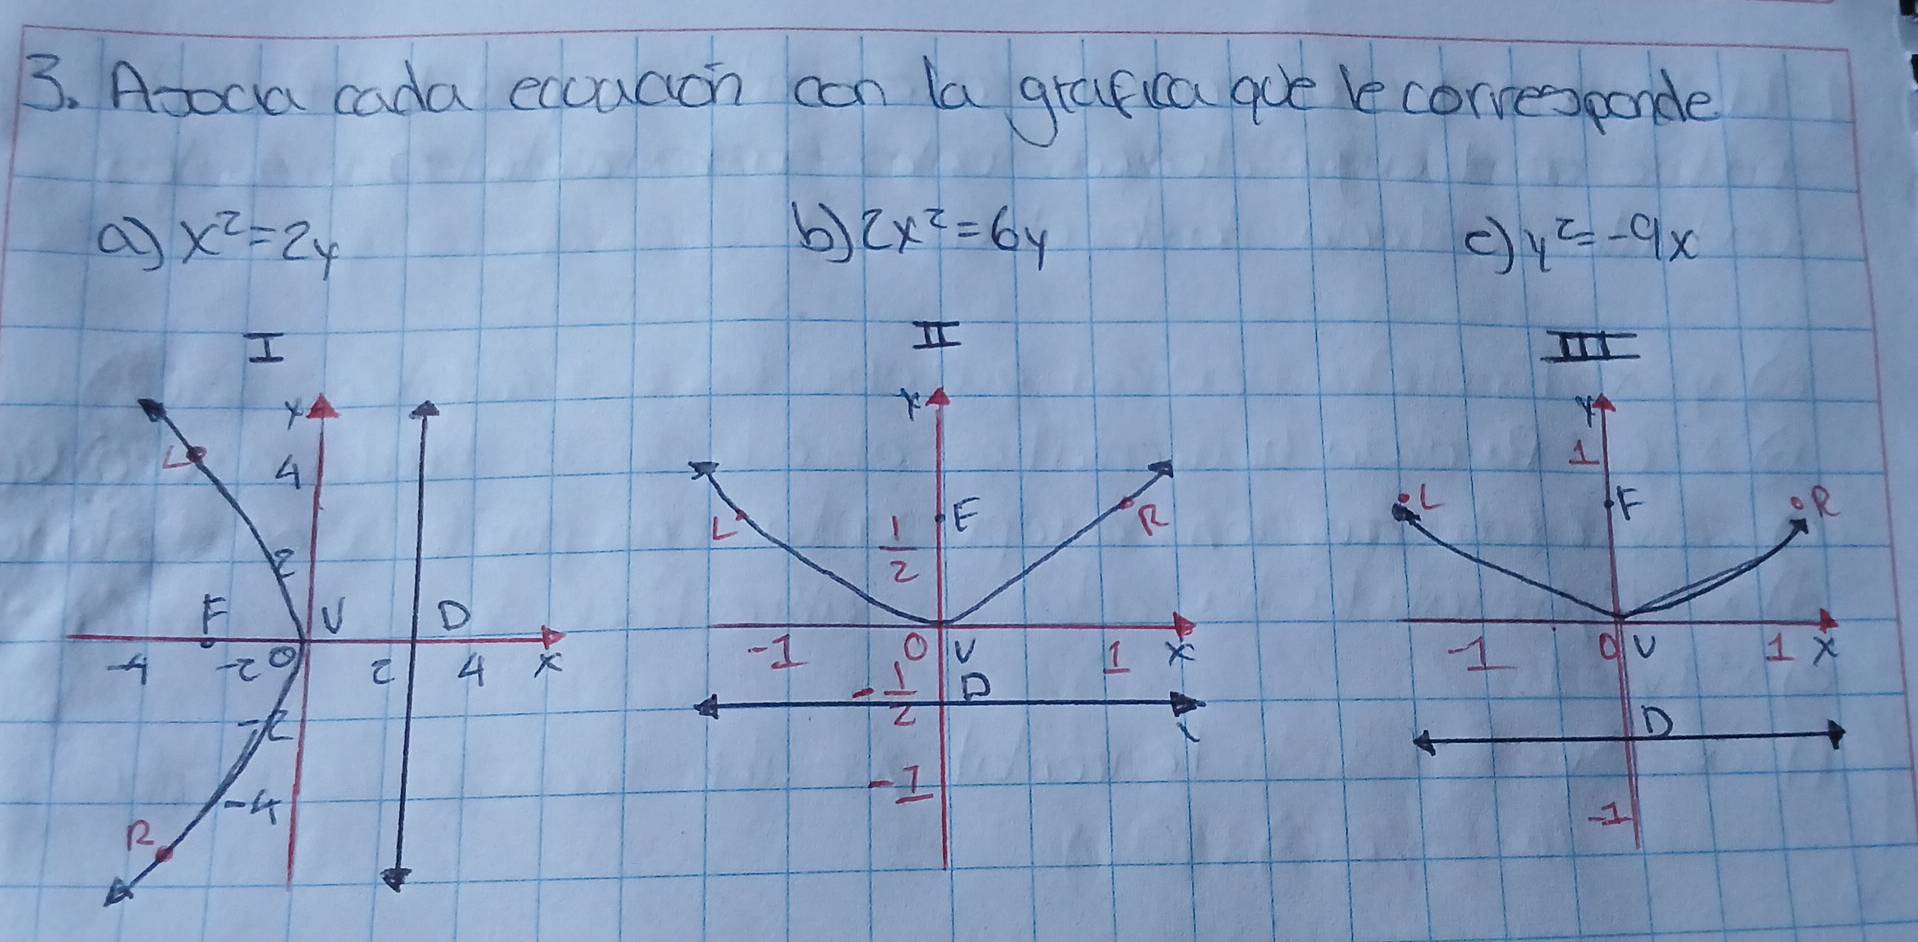 3. Asocia cada ecuación con la grafica que le corresponde
a) x²=2y b) 2x²=6y c) y²=-9x
I II III
y y y
L 4 1
L F R L F R
1/2
2
F V D
-4 -2 0 2 4 x -1 0 V 1 x -1 0 V 1 x
-2 -1/2 D D
-4 -1 -1
R